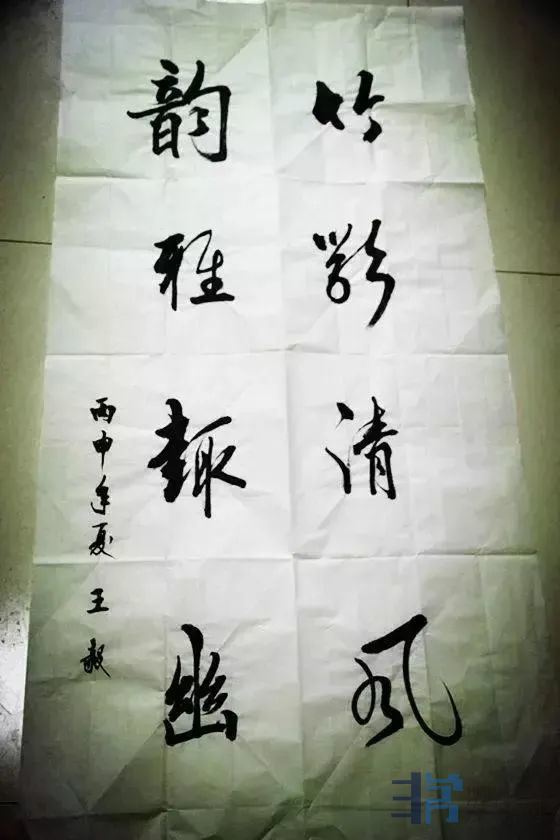 竹清风
韵雅趣幽
丙申年夏 王毅
非常